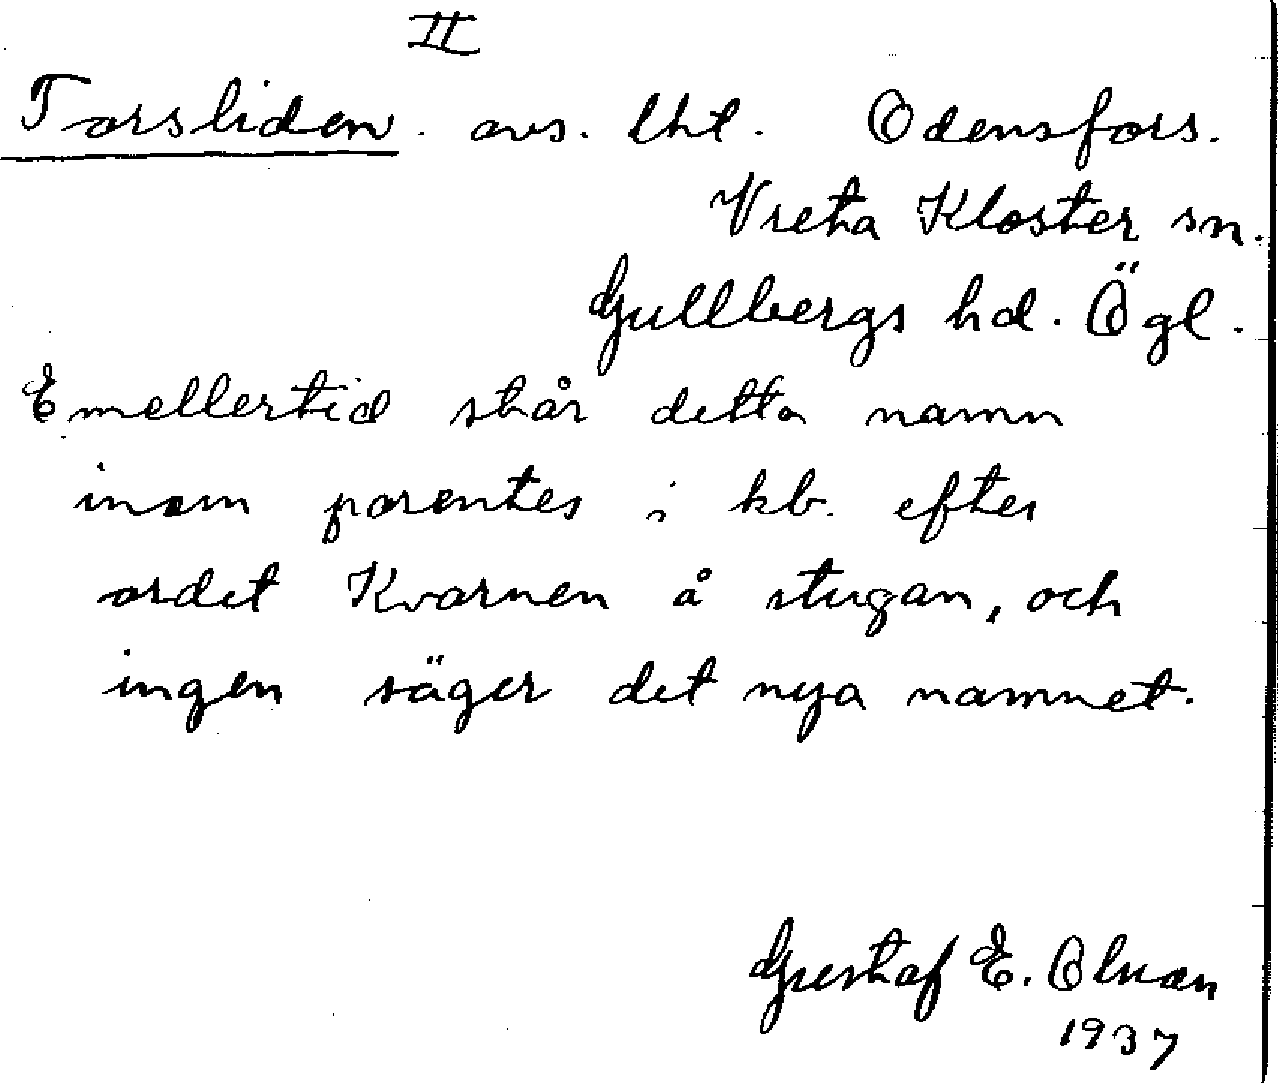 II
Torsliden. avs. lht. Odensfors.
Vreta Kloster sn.
Gullbergs hd. Ögl.
Emellertid står detta namn
inom parentes i kb. efter
ordet Kvarnen å stugan, och
ingen säger det nya namnet.
Gustaf E. Olson
1937